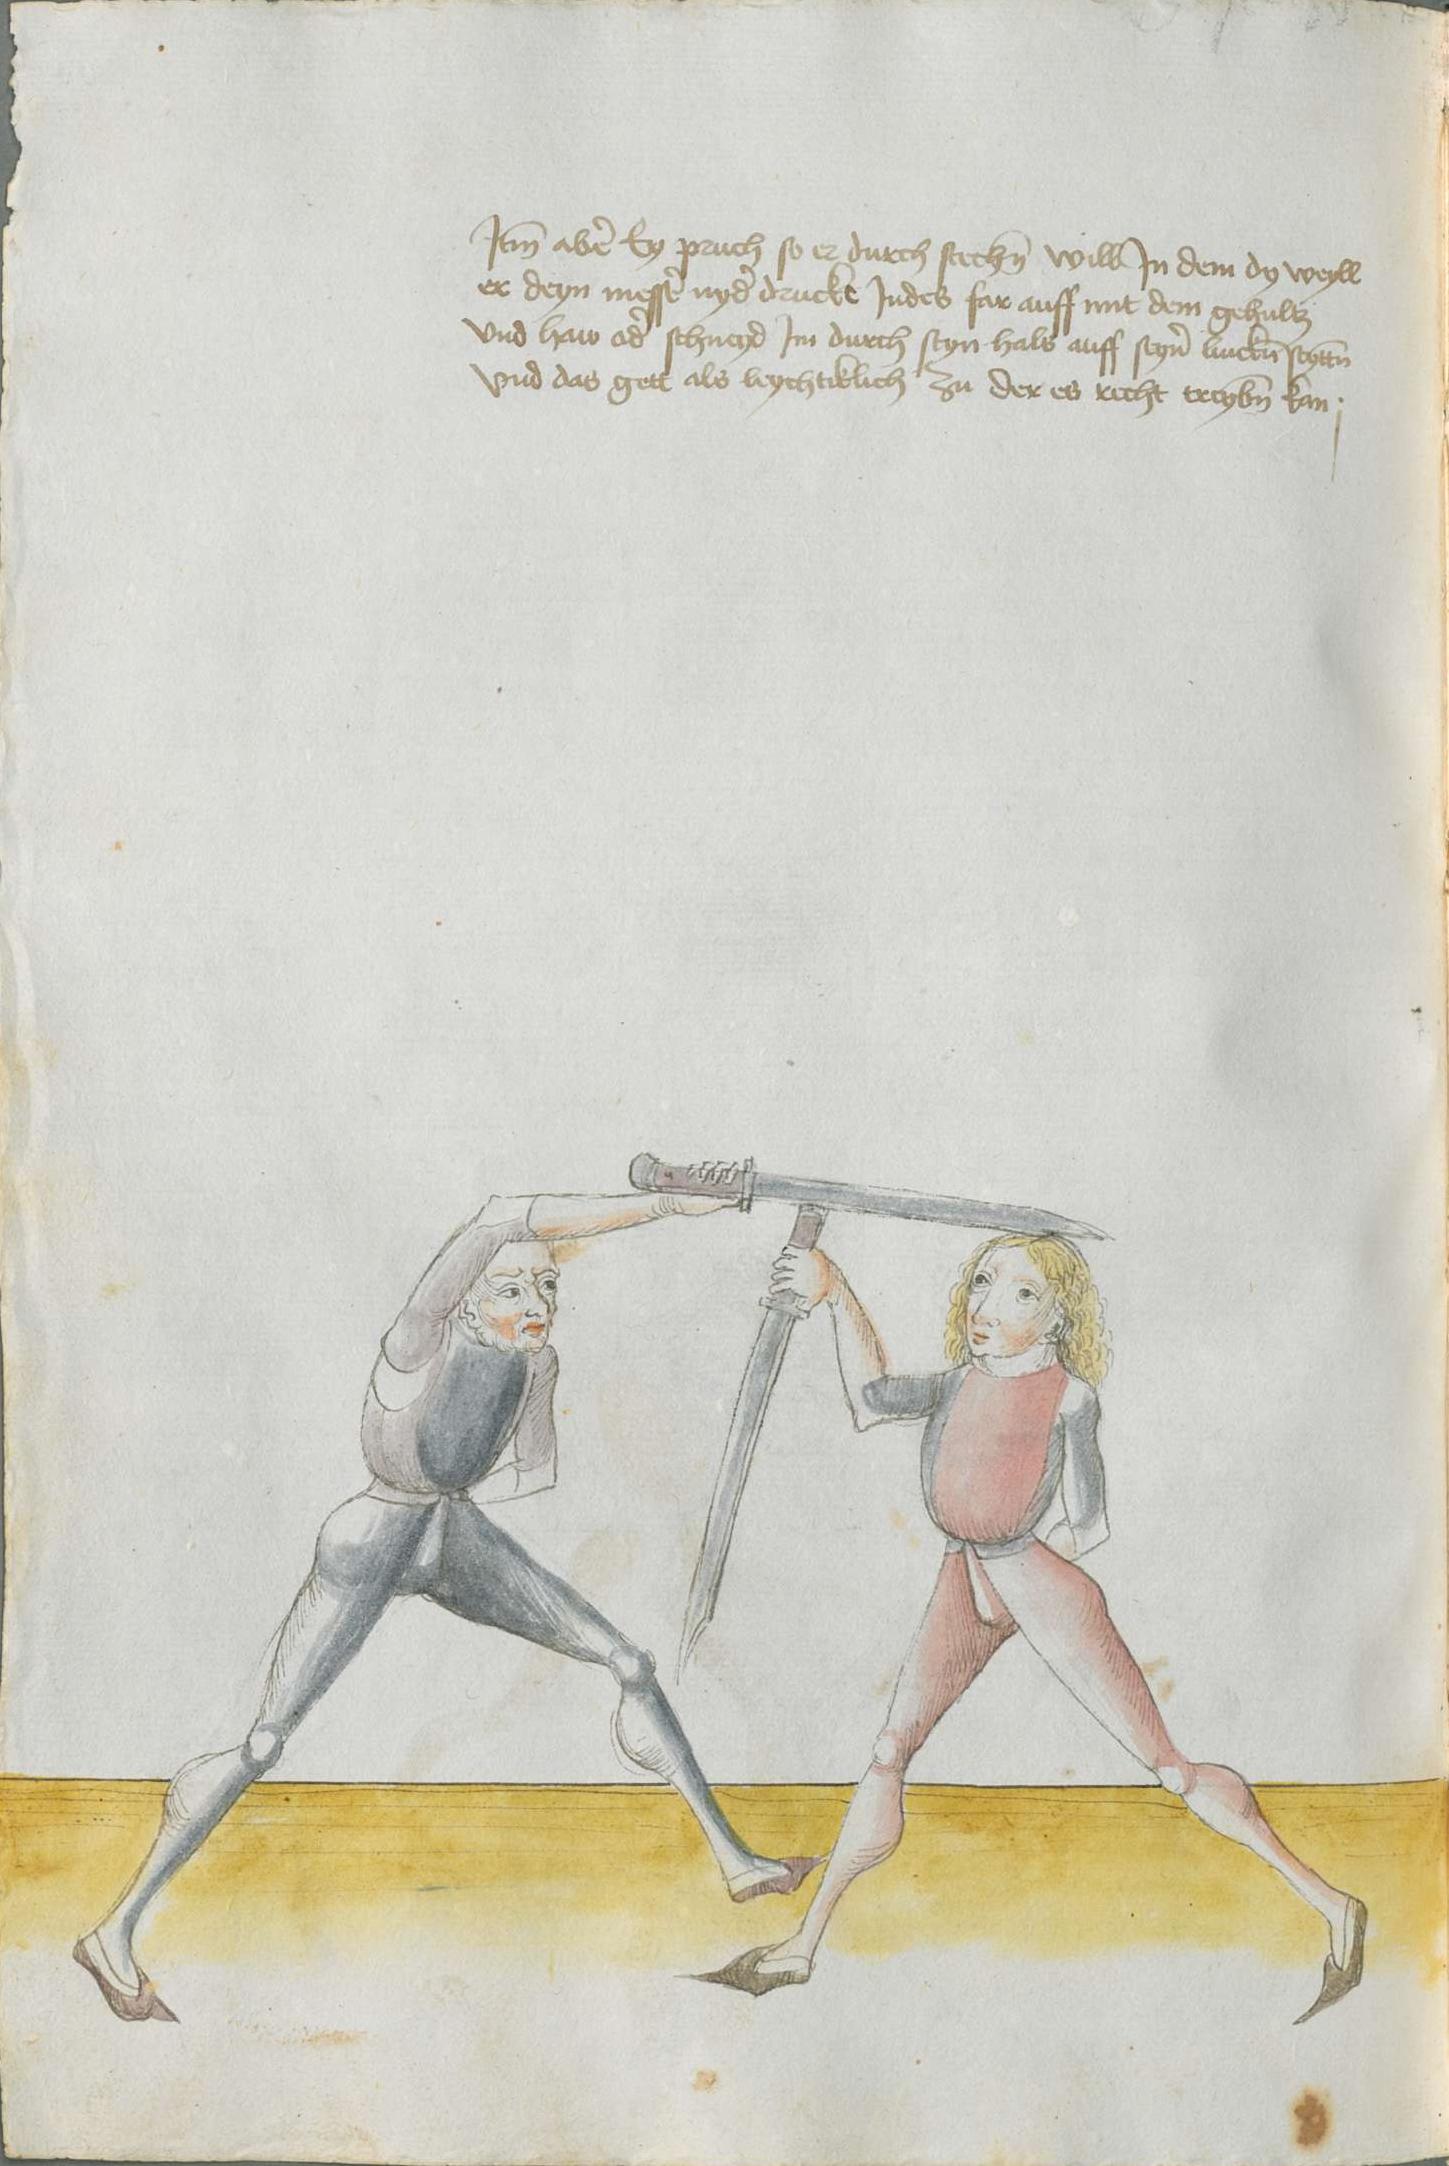 Itm̄ abẽ Ey pruch so er durch stechn̄ will In dem dy weyll
er deyn messẽ nydẽ druckt Indes far auff mit dem gehultz
vnd haw odẽ schneyd Im durch seyn hals auff seyñ linckn̄ seyttn̄
vnd das gett als leychtiklich zu der es recht treybn̄ kan.